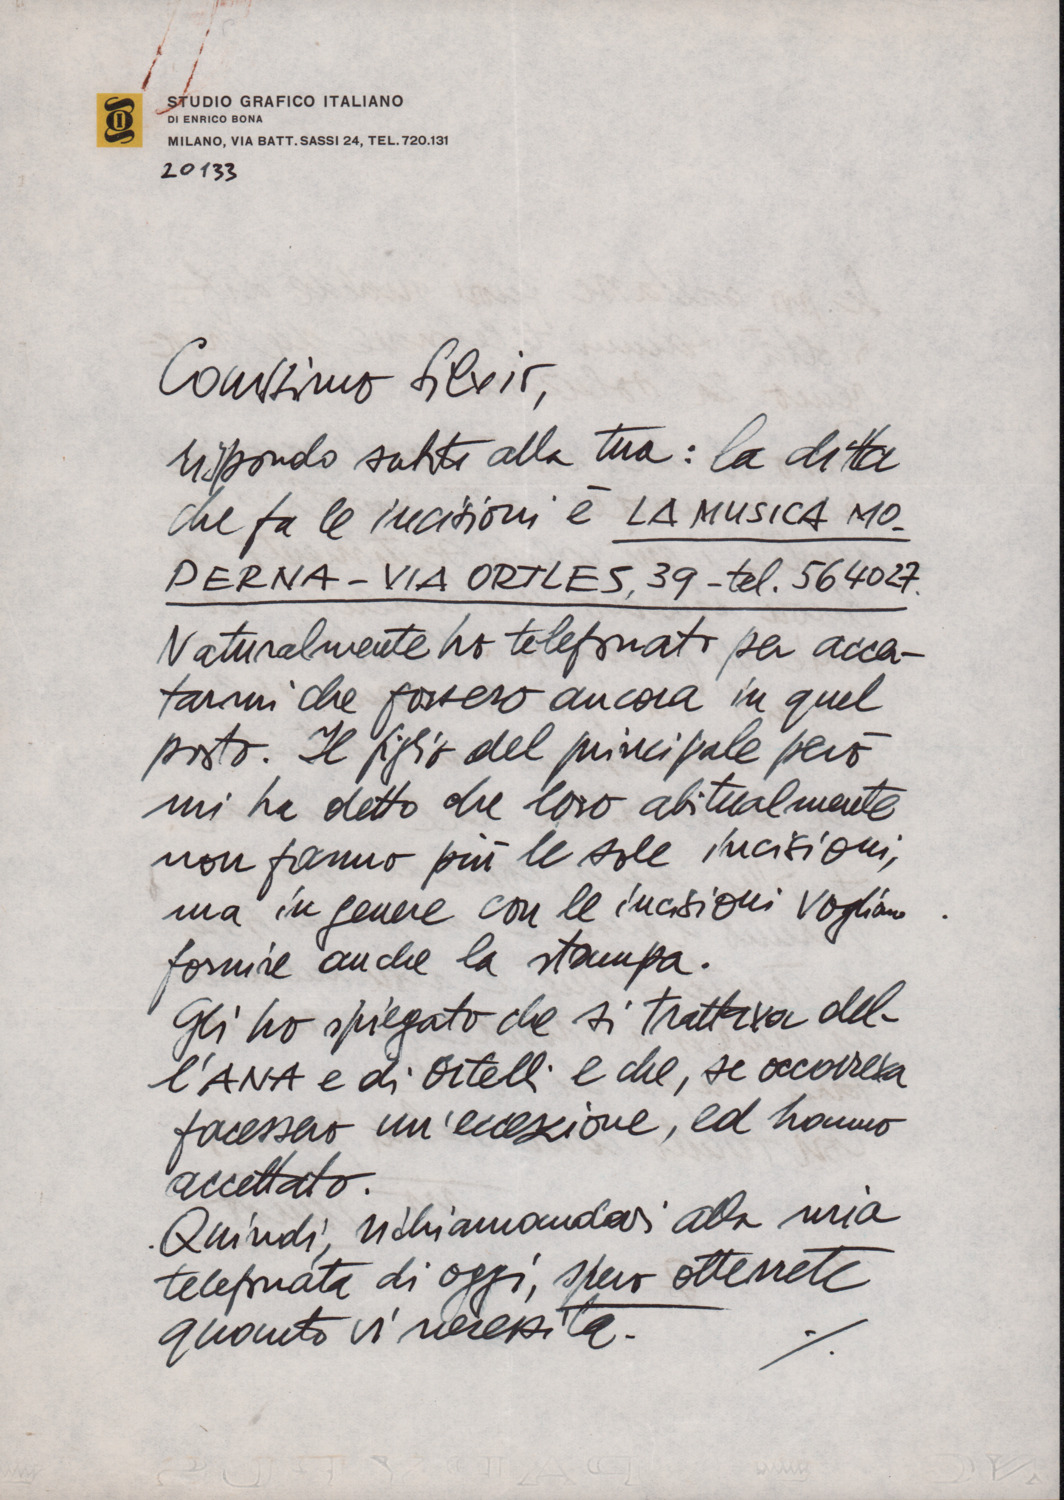 STUDIO GRAFICO ITALIANO
DI ENRICO BONA
MILANO, VIA BATT. SASSI 24, TEL. 720.131
20133
Carissimo Silvio,
rispondo subito alla tua: la ditta
che fa le incisioni è LA MUSICA MO-
DERNA - VIA ORTLES, 39 - tel. 564027.
Naturalmente ho telefonato per accer-
tarmi che fossero ancora in quel
posto. Il figlio del principale però
mi ha detto che loro abitualmente
non fanno più le sole incisioni,
ma in genere con le incisioni vogliono
fornire anche la stampa.
Gli ho spiegato che si trattava del-
l'ANA e di Ortelli e che, se occorreva
facessero un'eccezione, ed hanno
accettato.
Quindi, richiamandovi alla mia
telefonata di oggi, spero otterrete
quanto vi necessita.
./.